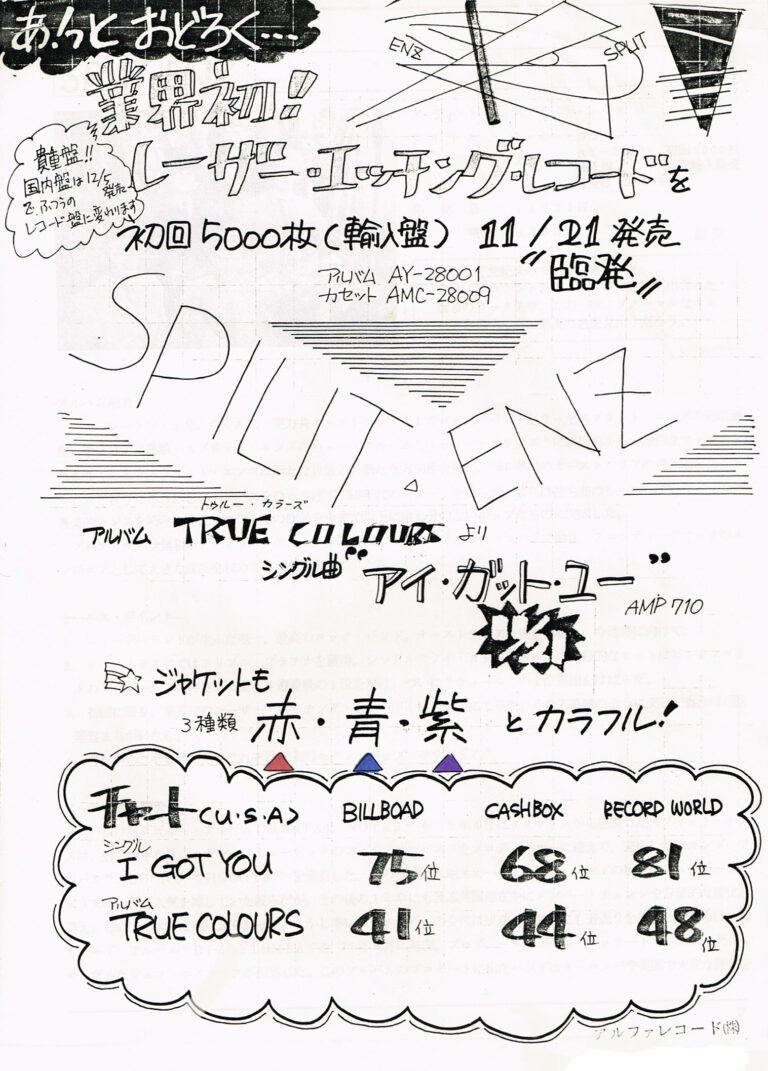 あ!っと おどろく…
ENZ
SPLIT
業界初!
貴重盤!!
国内盤は12/5発売
で、ふつうの
レコード盤に変わります
レーザー・エッチング・レコードを
初回5000枚(輸入盤) 11/21発売
"臨発"
アルバム AY-28001
カセット AMC-28009
SPLIT ENZ
トゥルー・カラーズ
アルバム TRUE COLOURS より
シングル曲"アイ・ガット・ユー"
AMP 710
ジャケットも
3種類 赤・青・紫 とカラフル!
チャート(U・S・A) BILLBOAD CASHBOX RECORD WORLD
シングル
I GOT YOU 75位 68位 81位
アルバム
TRUE COLOURS 41位 44位 48位
アルファレコード(株)